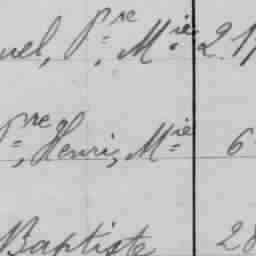 uel, Pre, Mie 21
Pre, Henri, Mie 6
Baptiste 28